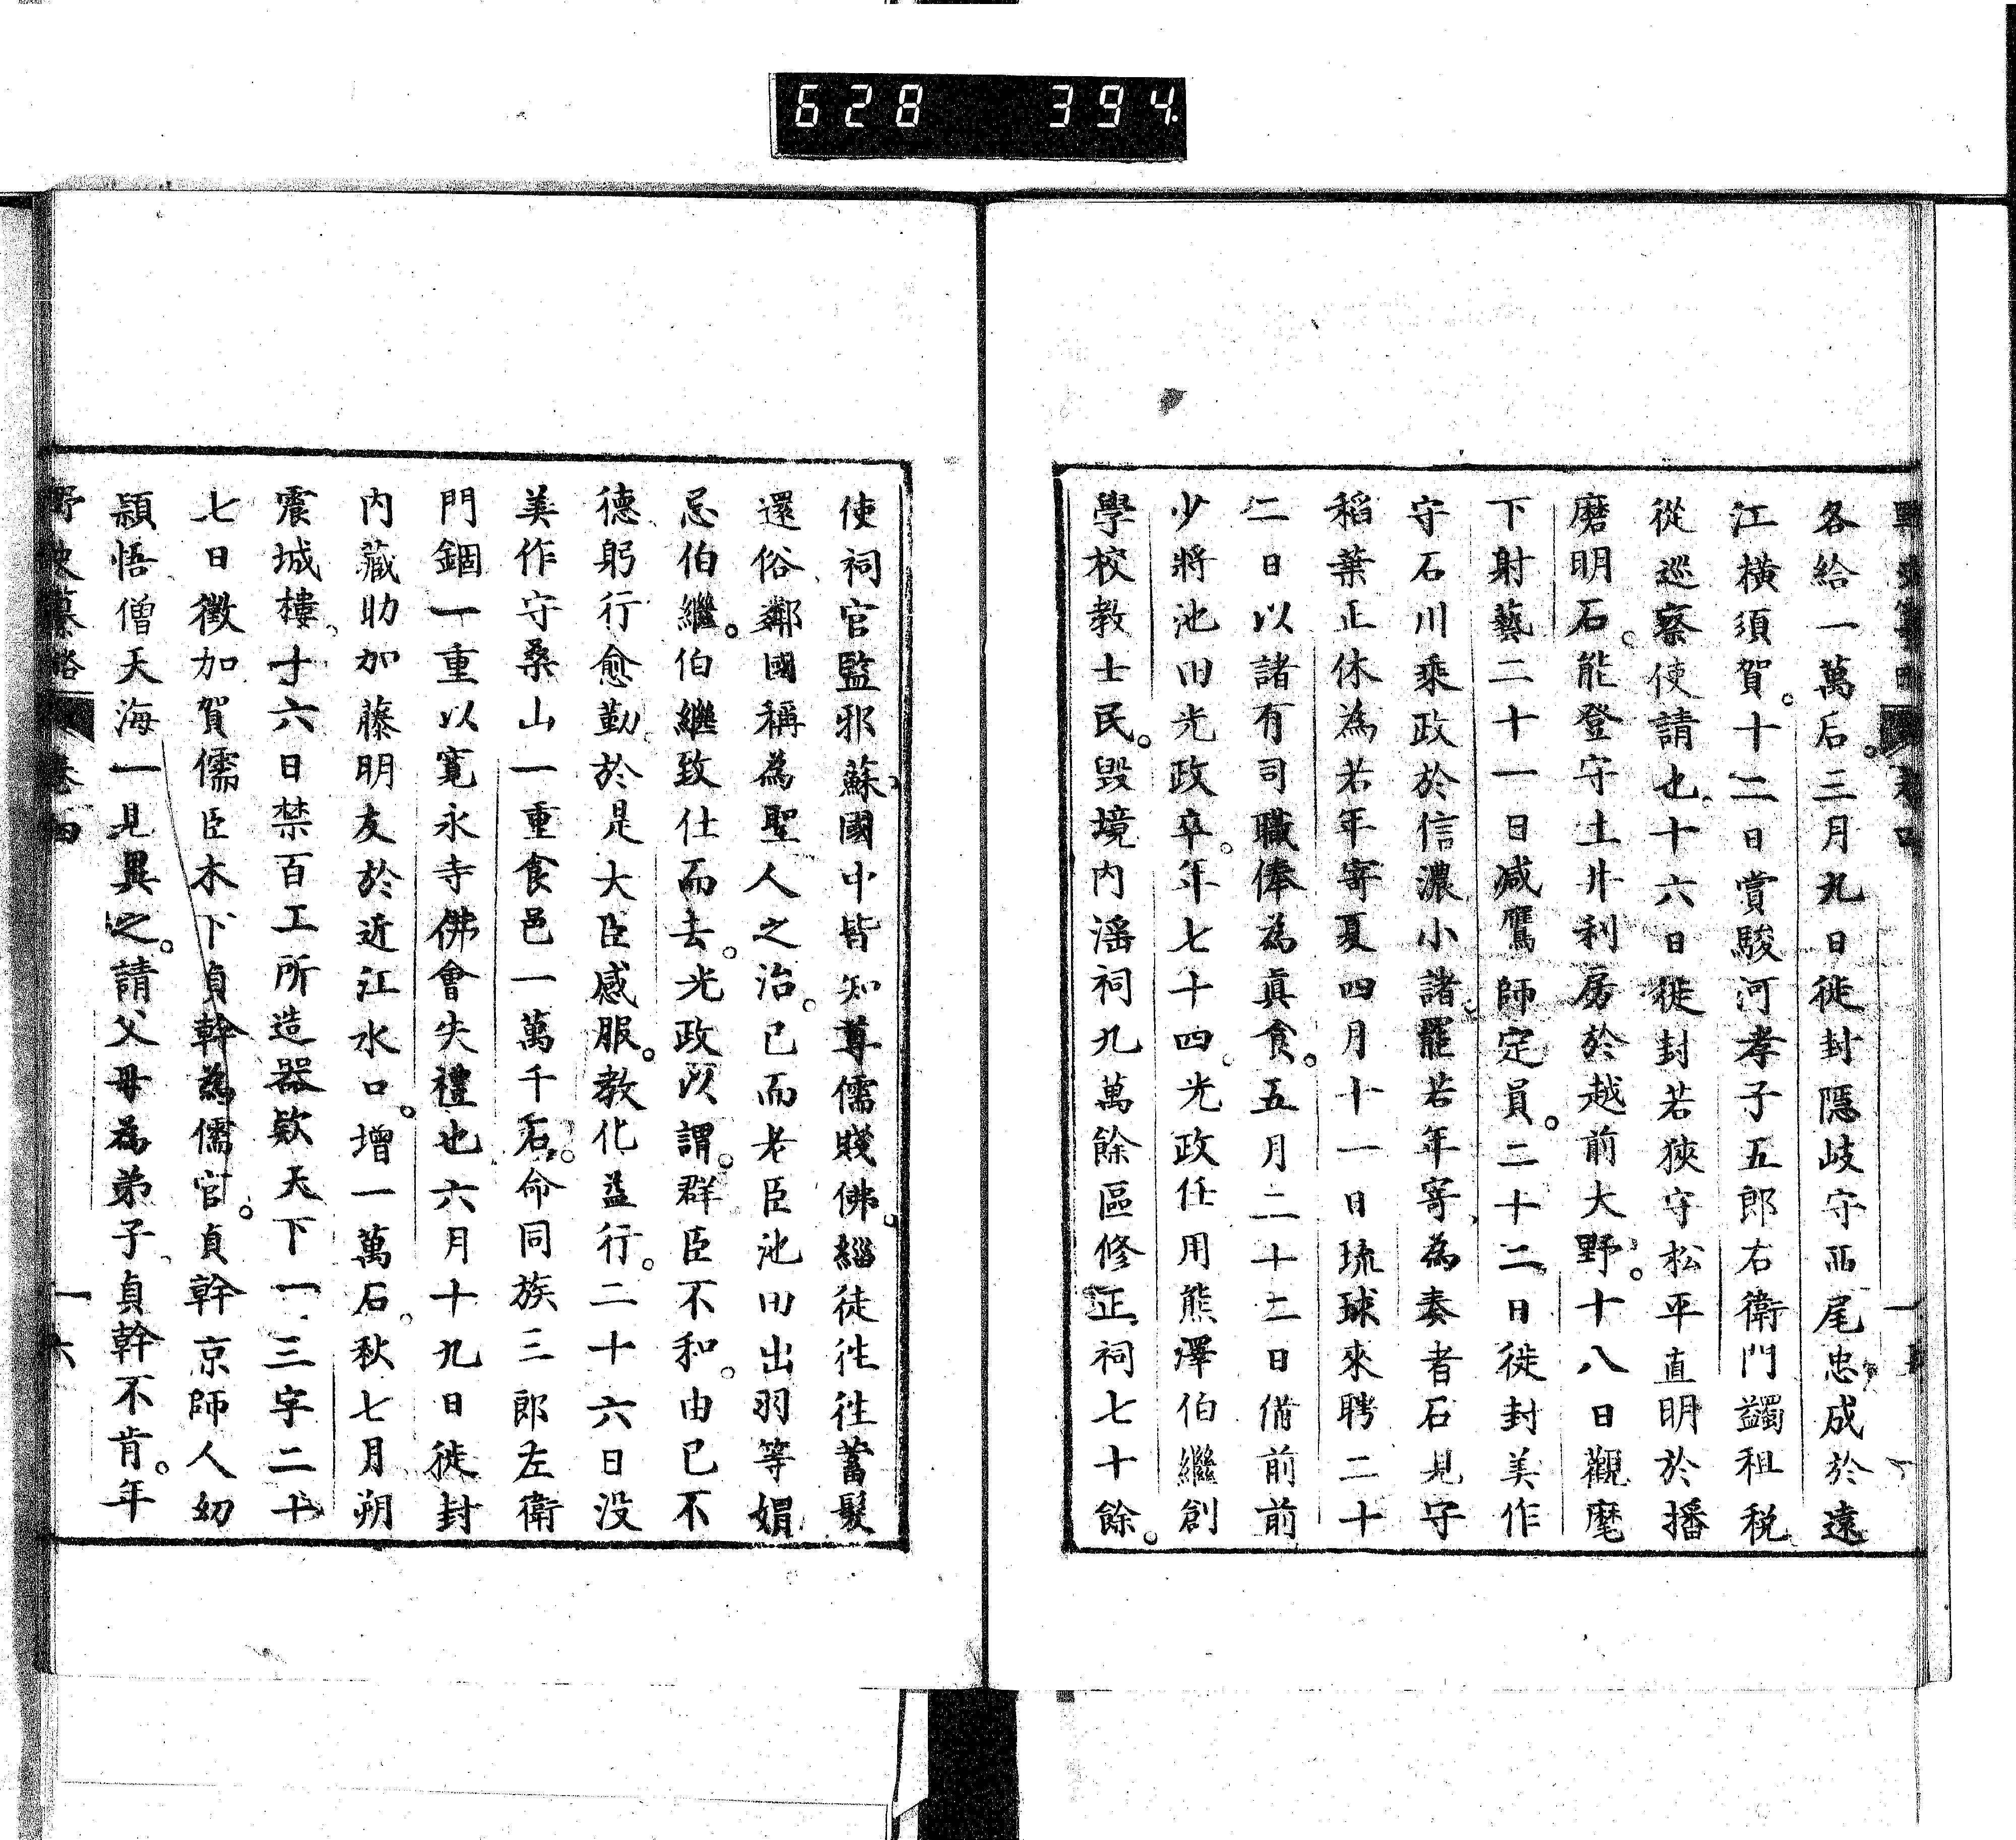 628 394
各給一萬石。三月九日徙封隱岐守西尾忠成於遠
江橫須賀。十二日賞駿河孝子五郎右衛門蠲租税
從巡察使請也。十六日徙封若狹守松平直明於播
磨明石。能登守土井利房於越前大野。十八日觀麾
下射藝二十一日减鷹師定員。二十二日徙封美作
守石川乘政於信濃小諸罷若年寄、為奏者石見守
稻葉正休為若年寄夏四月十一日琉球來聘二十
二日以諸有司職俸為眞食。五月二十二日備前前
少將池田光政卒。年七十四。光政任用熊澤伯繼創
學校教士民。毀境内滛祠九萬餘區修正祠七十餘。
使祠官監邪蘇、國中皆知尊儒賤佛、緇徒徃徃蓄髮
還俗、鄰國稱為聖人之治。已而老臣池田出羽等娟
忌伯繼。伯繼致仕而去。光政以謂。群臣不和。由已不
德、躬行愈勤。於是大臣感服。教化益行。二十六日没
美作守桑山一重食邑一萬千石。命同族三郎左衛
門錮一重以寬永寺佛會失禮也六月十九日徙封
内藏助加藤明友於近江水口。增一萬石。秋七月朔
震城樓。十六日禁百工所造器欵天下一三字二十
七日徵加賀儒臣木下貞幹為儒官。貞幹京師人幼
頴悟僧天海一見異之。請父母為弟子、貞幹不肯。年
野史纂略 卷四 一六